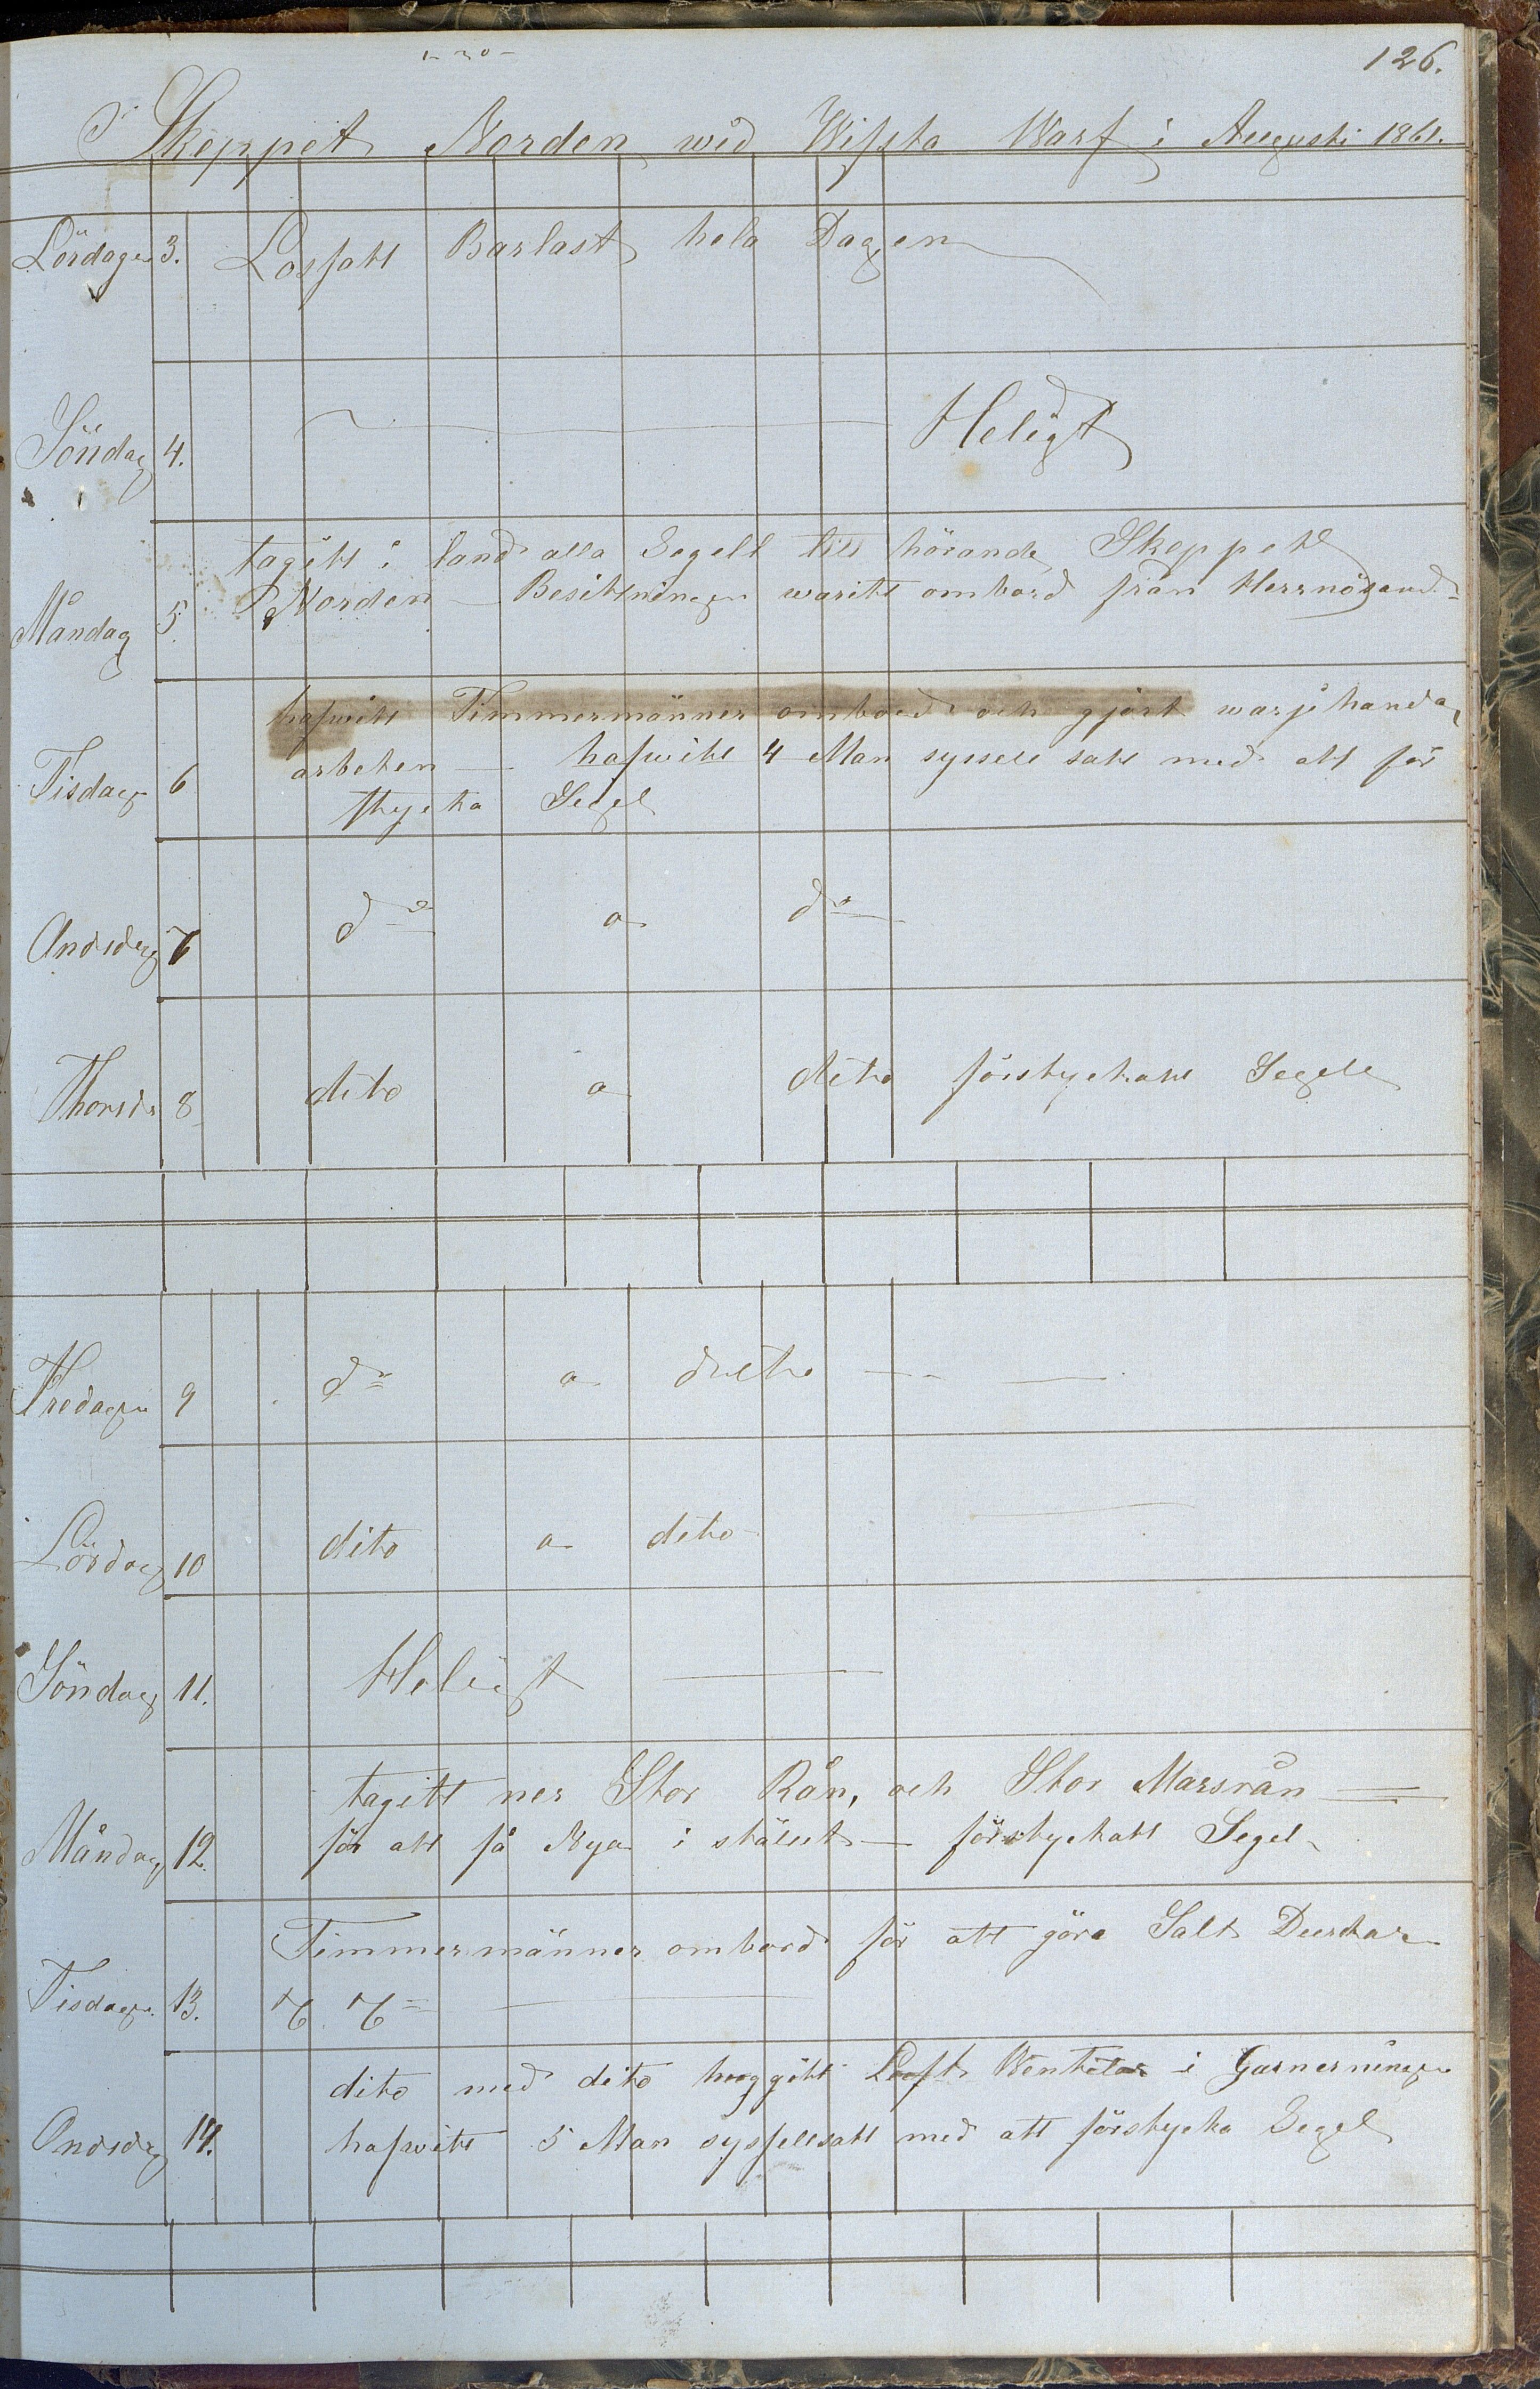 126.
I Skeppet Norden wid Wifsta Warf i Augusti 1861.
Lördagen 3. Lossatt Barlast hela Dagen
Söndag 4. Heligt
tagitt i land alla Segell till hörande Skeppet
Måndag 5. Norden — Besittningen waritt ombord från Hernösand
hafwitt Timmermänner ombord och gjort warjehanda
Tisdag 6 arbeten — hafwitt 4 Man sysselsatt med att för
stycka Segel
Ondsdag 7 do a do
Thorsd 8 dito a dito förstyckatt Segell
Fredagen 9 do a dito
Lördag 10 dito a dito
Söndag 11. Heligt
tagitt ner Stor Rån, och Stor Marsrån
Måndag 12. för att få Nya i stället — förstyckatt Segel
Timmermänner ombord för att göra Salt
Tisdagen 13.
dito med dito huggitt Luft i Garneringen
Ondsdag 14. hafwitt 5 Man sysselsatt med att förstycka Segel